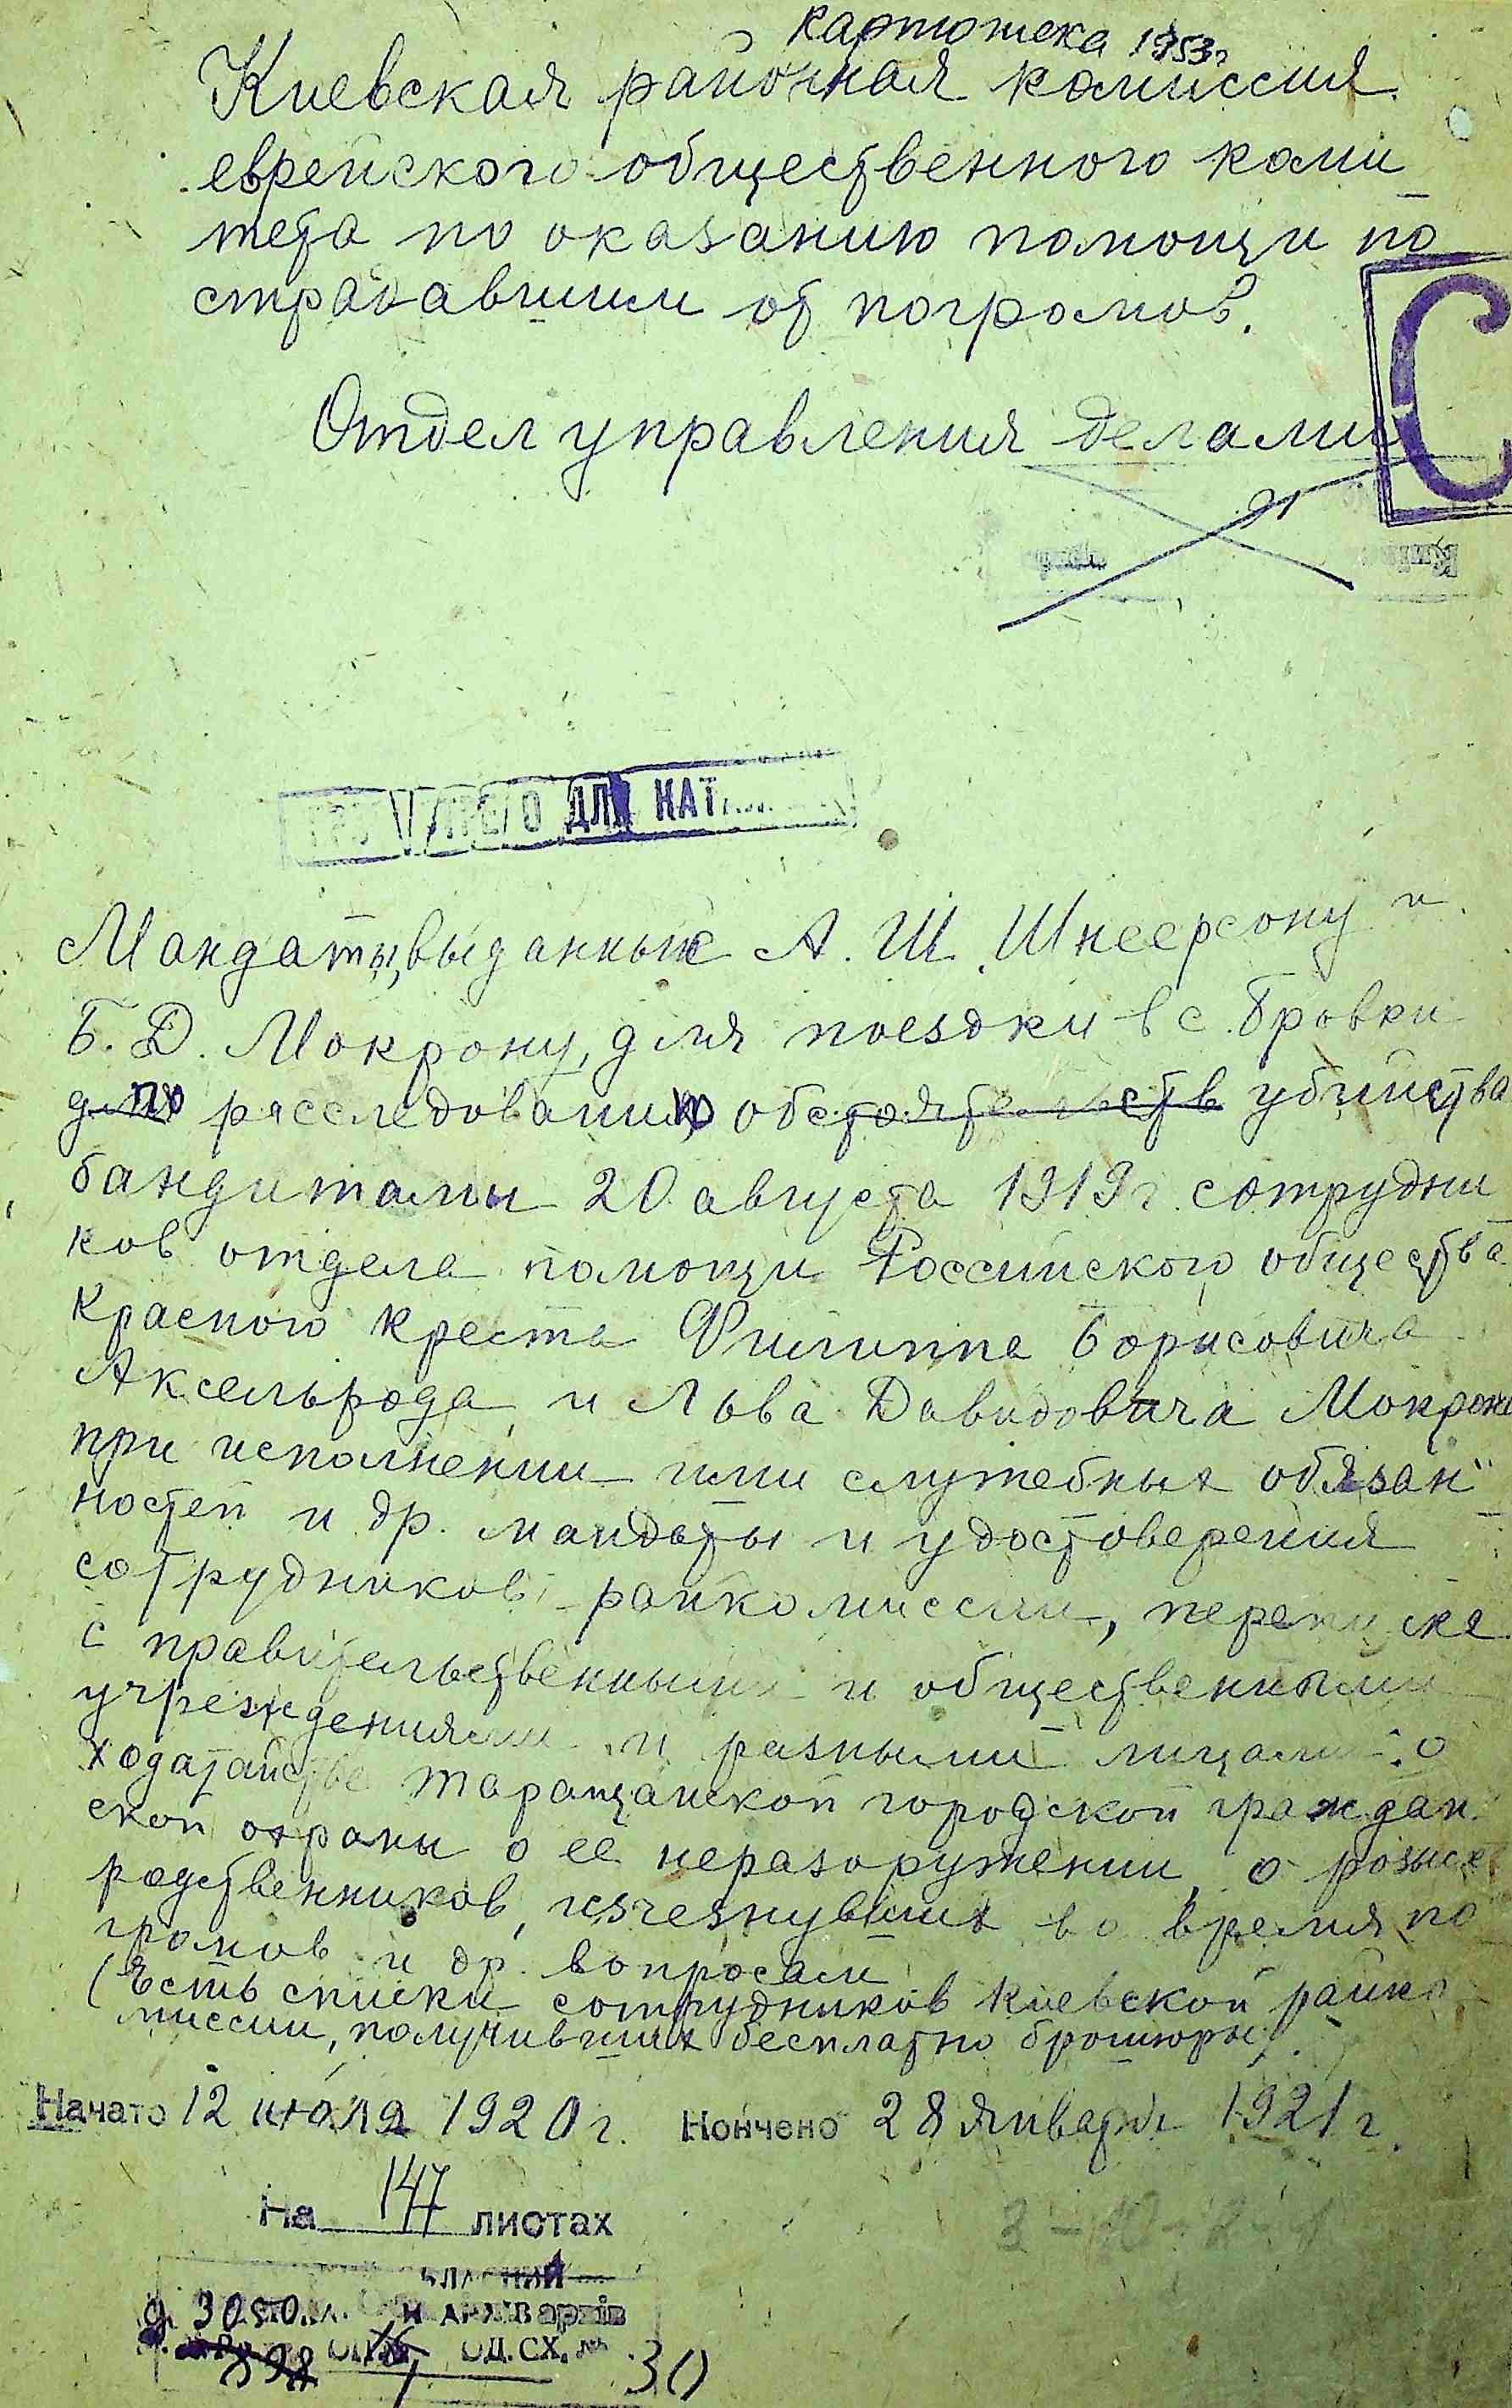 картотека 1953г
Киевская районная комиссия
еврейского общественного коми
тета по оказанию помощи по
страдавшим от погромов.
С
Отдел управления делами
ДЛЯ КАТ
Мандаты, выданные А. Ш. Шнеерсону и
Б. Д. Мокрону, для поездки в с. Бровки
для по расследованию обстоятельств убийства
бандитами 20 августа 1919г. сотрудни
ков отдела помощи Российского общества
Красного Креста Филиппа Борисовича
Аксельрода и Льва Давидовича Мокрона
при исполнении ими служебных обязан
ностей и др. мандаты и удостоверения
сотрудников райкомиссии, переписка
с правительственными и общественными
учреждениями и разными лицами: о
ходатайстве Таращанской городской граждан
ской охраны о её неразоружении, о розыске
родственников, изчезнувших во время по
громов и др. вопросам
(Есть списки сотрудников Киевской райко
миссии, получивших бесплатно брошюры).
Начато 12 июля 1920г. Кончено 28 января 1921г.
На 147 листах
АРХІВ архів
д. 3050
ОД.СХ.
30